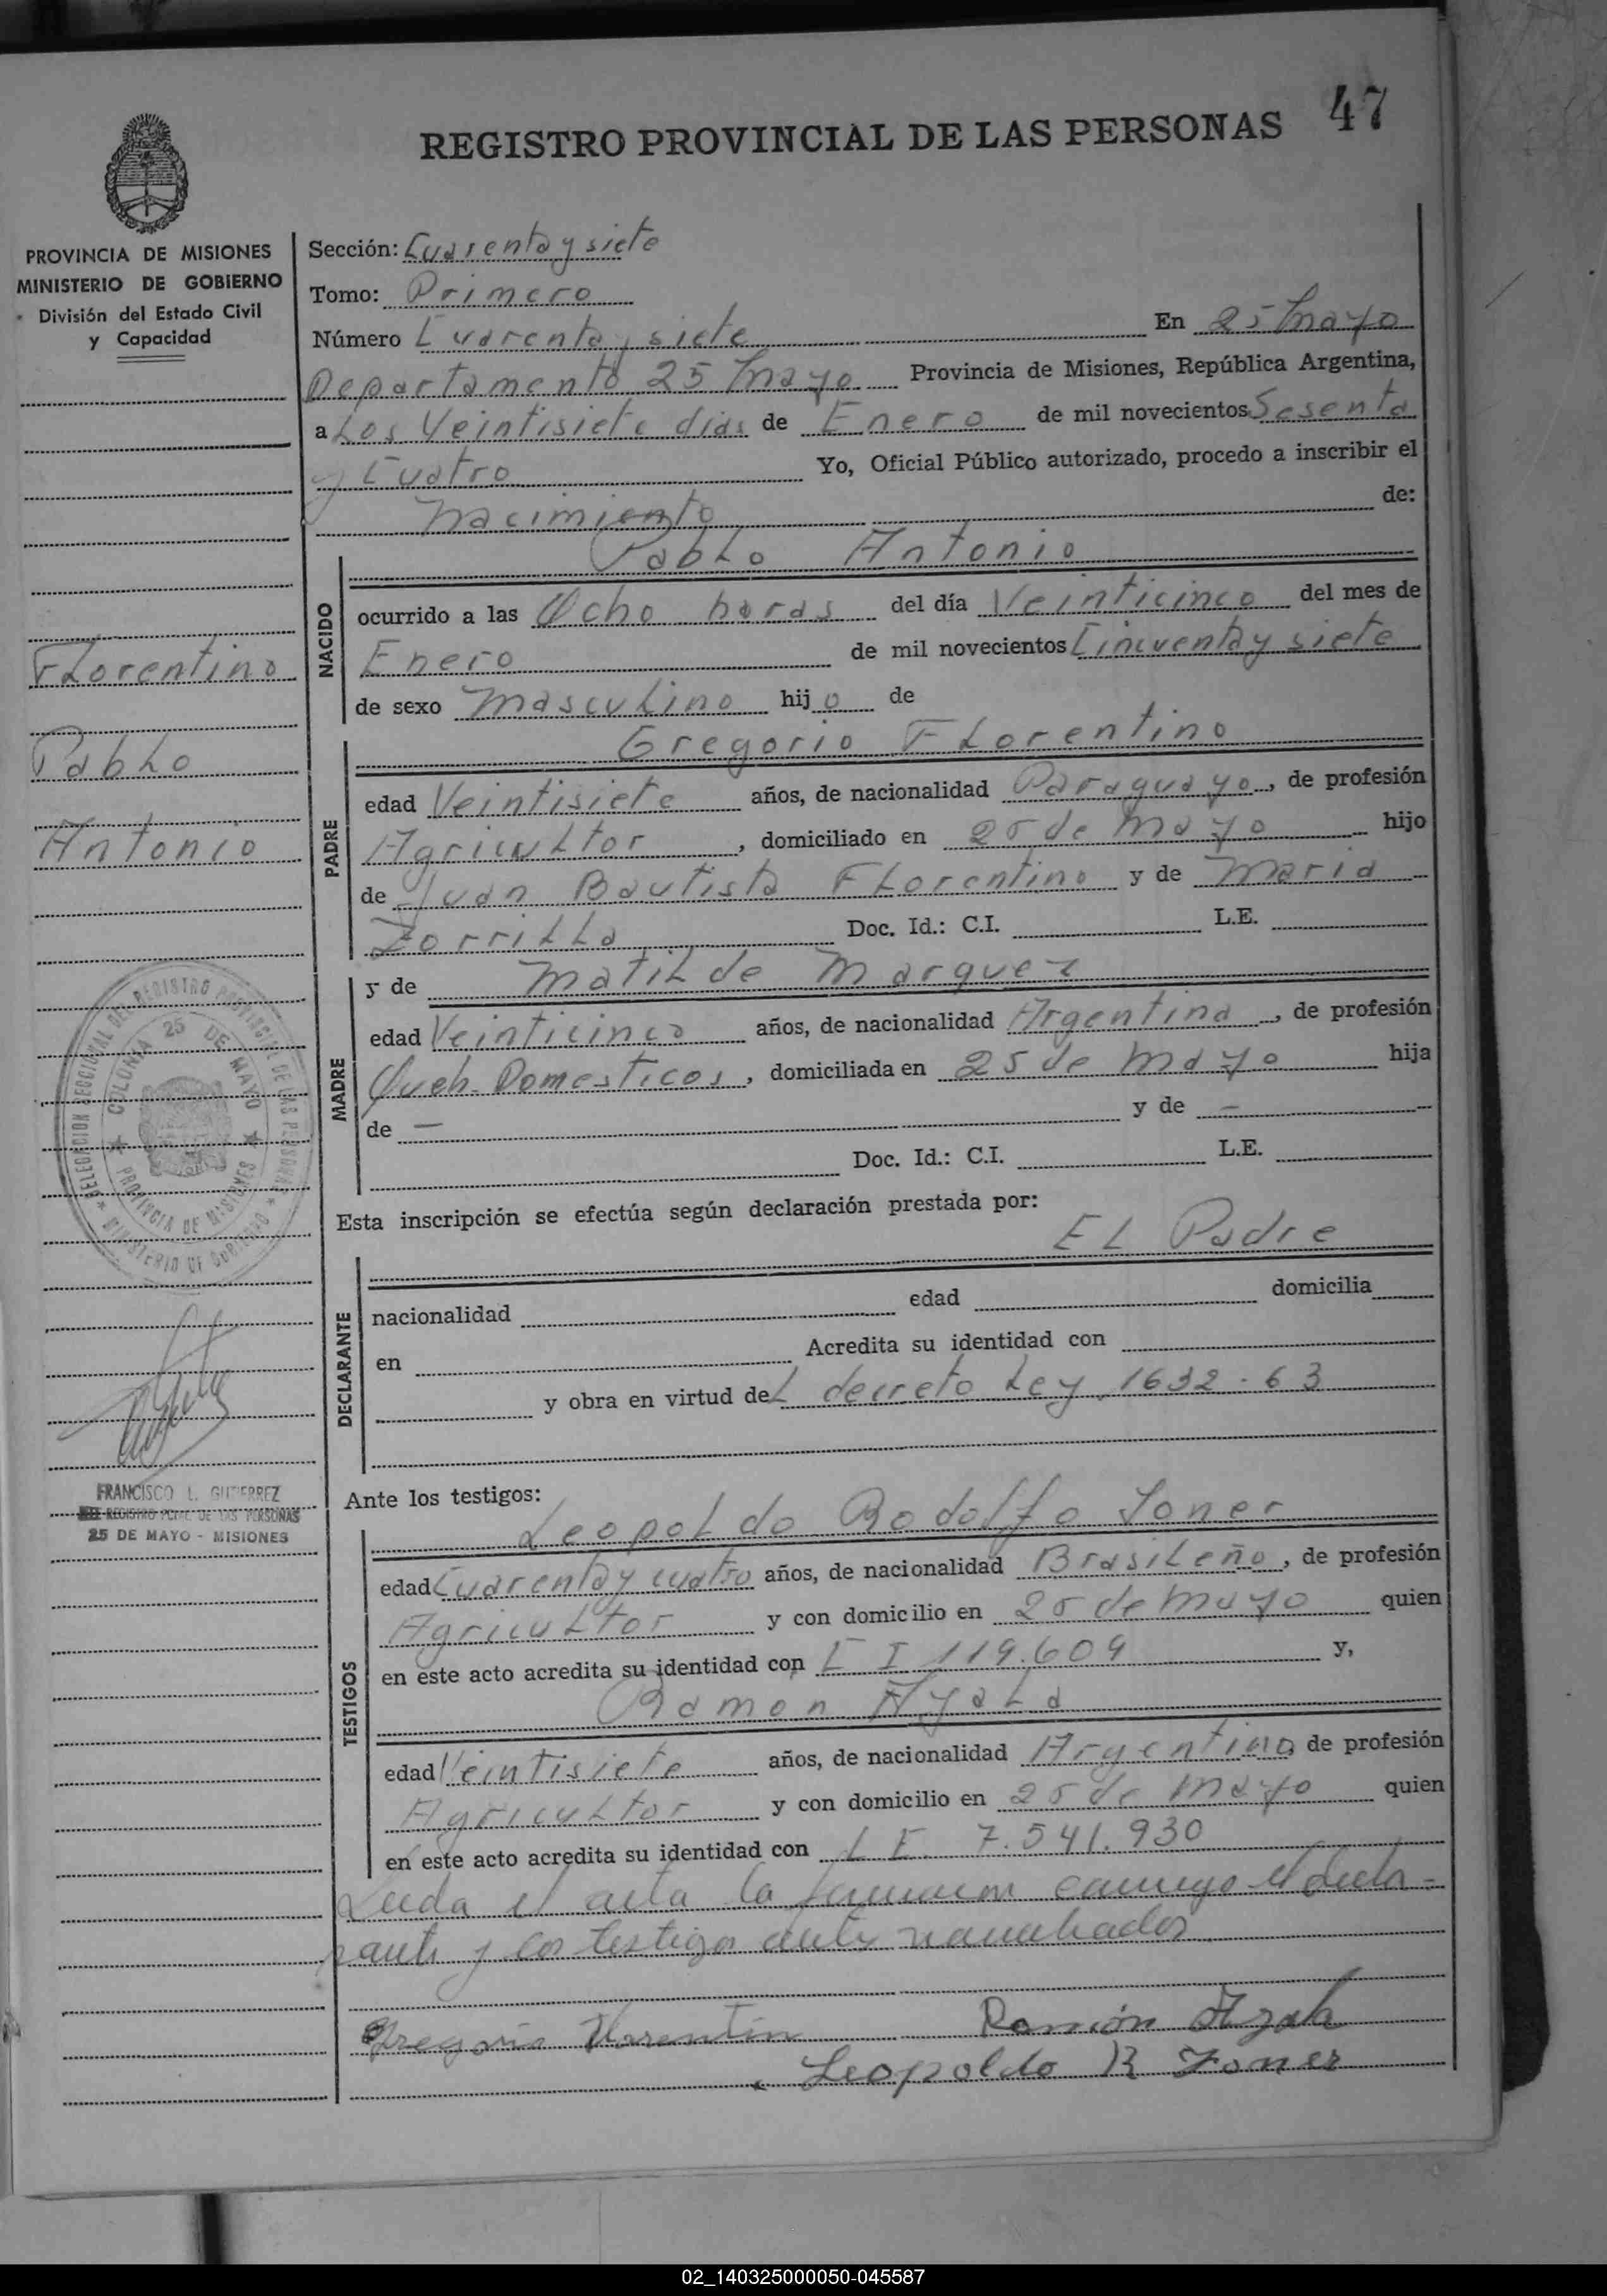 47
REGISTRO PROVINCIAL DE LAS PERSONAS
PROVINCIA DE MISIONES
MINISTERIO DE GOBIERNO
División del Estado Civil
y Capacidad
Sección: Cuarenta y siete
Tomo: Primero
Número Cuarenta y siete En 25 Mayo
Departamento 25 Mayo Provincia de Misiones, República Argentina,
a Los Veintisiete dias de Enero de mil novecientos Sesenta
y Cuatro Yo, Oficial Público autorizado, procedo a inscribir el
Nacimiento de:
NACIDO
Pablo Antonio
ocurrido a las Ocho horas del día Veinticinco del mes de
Enero de mil novecientos Cincuenta y siete
de sexo Masculino hijo de
Florentino
Pablo
Antonio
PADRE
Gregorio Florentino
edad Veintisiete años, de nacionalidad Paraguayo, de profesión
Agricultor, domiciliado en 25 de Mayo hijo
de Juan Bautista Florentino y de Maria
Zorrilla Doc. Id.: C.I. L.E.
MADRE
y de Matilde Marquez
edad Veinticinco años, de nacionalidad Argentina, de profesión
Queh. Domesticos, domiciliada en 25 de Mayo hija
de — y de —
Doc. Id.: C.I. L.E.
DELEGACION SECCIONAL DEL REGISTRO PROVINCIAL DE LAS PERSONAS
COLONIA 25 DE MAYO
PROVINCIA DE MISIONES
MINISTERIO DE GOBIERNO
Esta inscripción se efectúa según declaración prestada por:
DECLARANTE
El Padre
nacionalidad edad domicilia
en Acredita su identidad con
y obra en virtud del decreto Ley 1632-63
FRANCISCO L. GUTIERREZ
REGISTRO PCIAL. DE LAS PERSONAS
25 DE MAYO - MISIONES
Ante los testigos:
TESTIGOS
Leopoldo Rodolfo Joner
edad Cuarenta y cuatro años, de nacionalidad Brasileño, de profesión
Agricultor y con domicilio en 25 de Mayo quien
en este acto acredita su identidad con C I 119.609 y,
Ramon Ayala
edad Veintisiete años, de nacionalidad Argentino de profesión
Agricultor y con domicilio en 25 de Mayo quien
en este acto acredita su identidad con L E. 7.541.930
Leida el acta la firmaron conmigo el decla-
rante y los testigos ante nombrados
Gregorio Florentin Ramón Ayala
Leopoldo R Joner
02_140325000050-045587